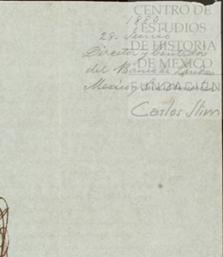 CENTRO DE
1880
ESTUDIOS
28. Junio
DE HISTORIA
Director y Contador
DE MEXICO
del Banco de Londres
Mexico y
FUNDACION
Carlos Slim